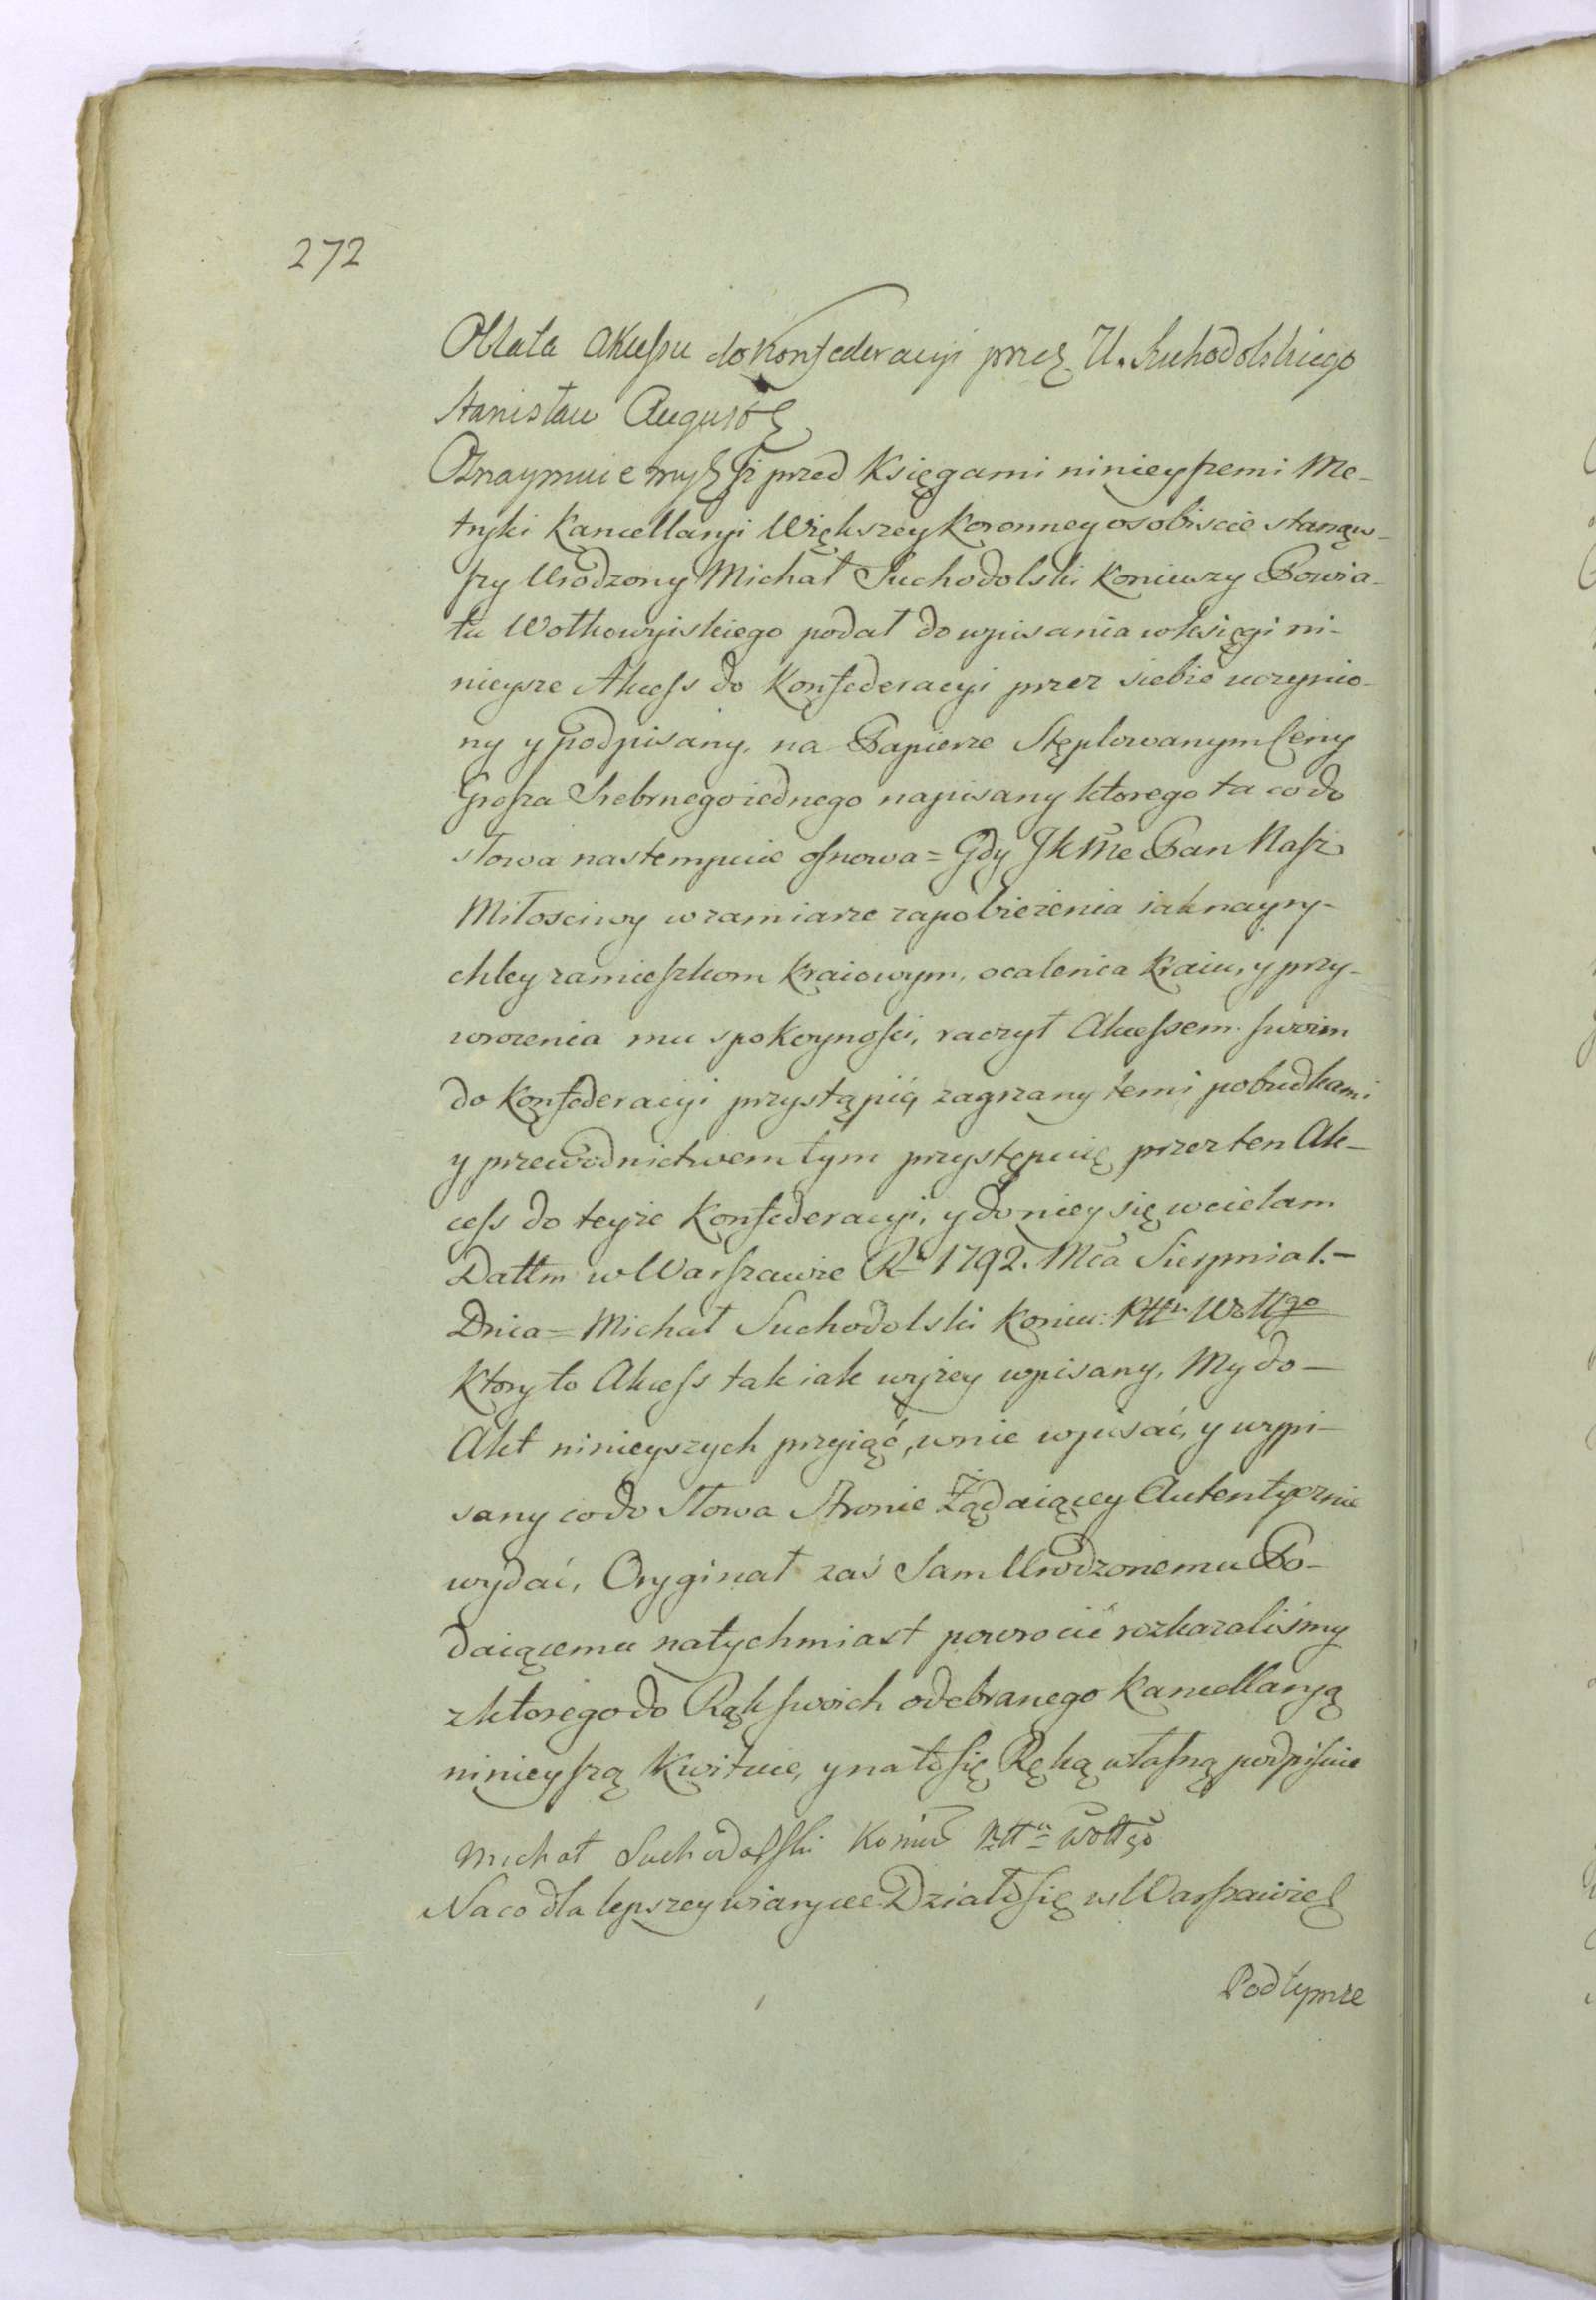 272
Oblata Akcessu do Konfederacyi przez U. Suchodolskiego
Stanisław August
Oznaymuiemy iż przed Księgami ninieyszemi Me-
tryki Kancellaryi Większey Koronney osobiscie stanąw-
szy Urodzony Michał Suchodolski Koniuszy Powia-
tu Wołkowyiskiego podał do wpisania w księgi ni-
nieysze Akcess do Konfederacyi przez siebie uczynio-
ny y podpisany, na Papierze Stęplowanym Ceny
Grosza Srebrnego iednego napisany ktorego ta co do
słowa nastempuie osnowa = Gdy JKMc Pan Nasz
Miłosciwy w zamiarze zapobieżenia iak nayry-
chley zamieszkom Kraiowym, ocalenia Kraiu, y przy-
wrocenia mu spokoynosci, raczył Akcessem swoim
do Konfederacyi przystąpić, zagrzany temi pobudkami
y przewodnictwem tym przystępuię przez ten Ak-
cess do teyże Konfederacyi, y do niey się wcielam
Dattm w Warszawie Ru 1792. Mca Sierpnia 1.-
Dnia = Michał Suchodolski Koniu: Pttu Wołłgo
Ktory to Akcess tak iak wyżey wpisany, My do-
Akt ninieyszych przyiąć, w nie wpisać, y wypi-
sany co do Słowa Stronie Żądaiącey Autentycznie
wydać, Oryginał zaś Sam Urodzonemu Po-
daiącemu natychmiast powrocić rozkazaliśmy
z ktorego do Rąk swoich odebranego Kancellaryą
ninieyszą Kwituie, y na to się Ręką własną podpisuie
Michał Suchodolski Koniu Pttu Wołłgo
Na co dla lepszey wiary etc Działo się w Warszawie
Pod tymże